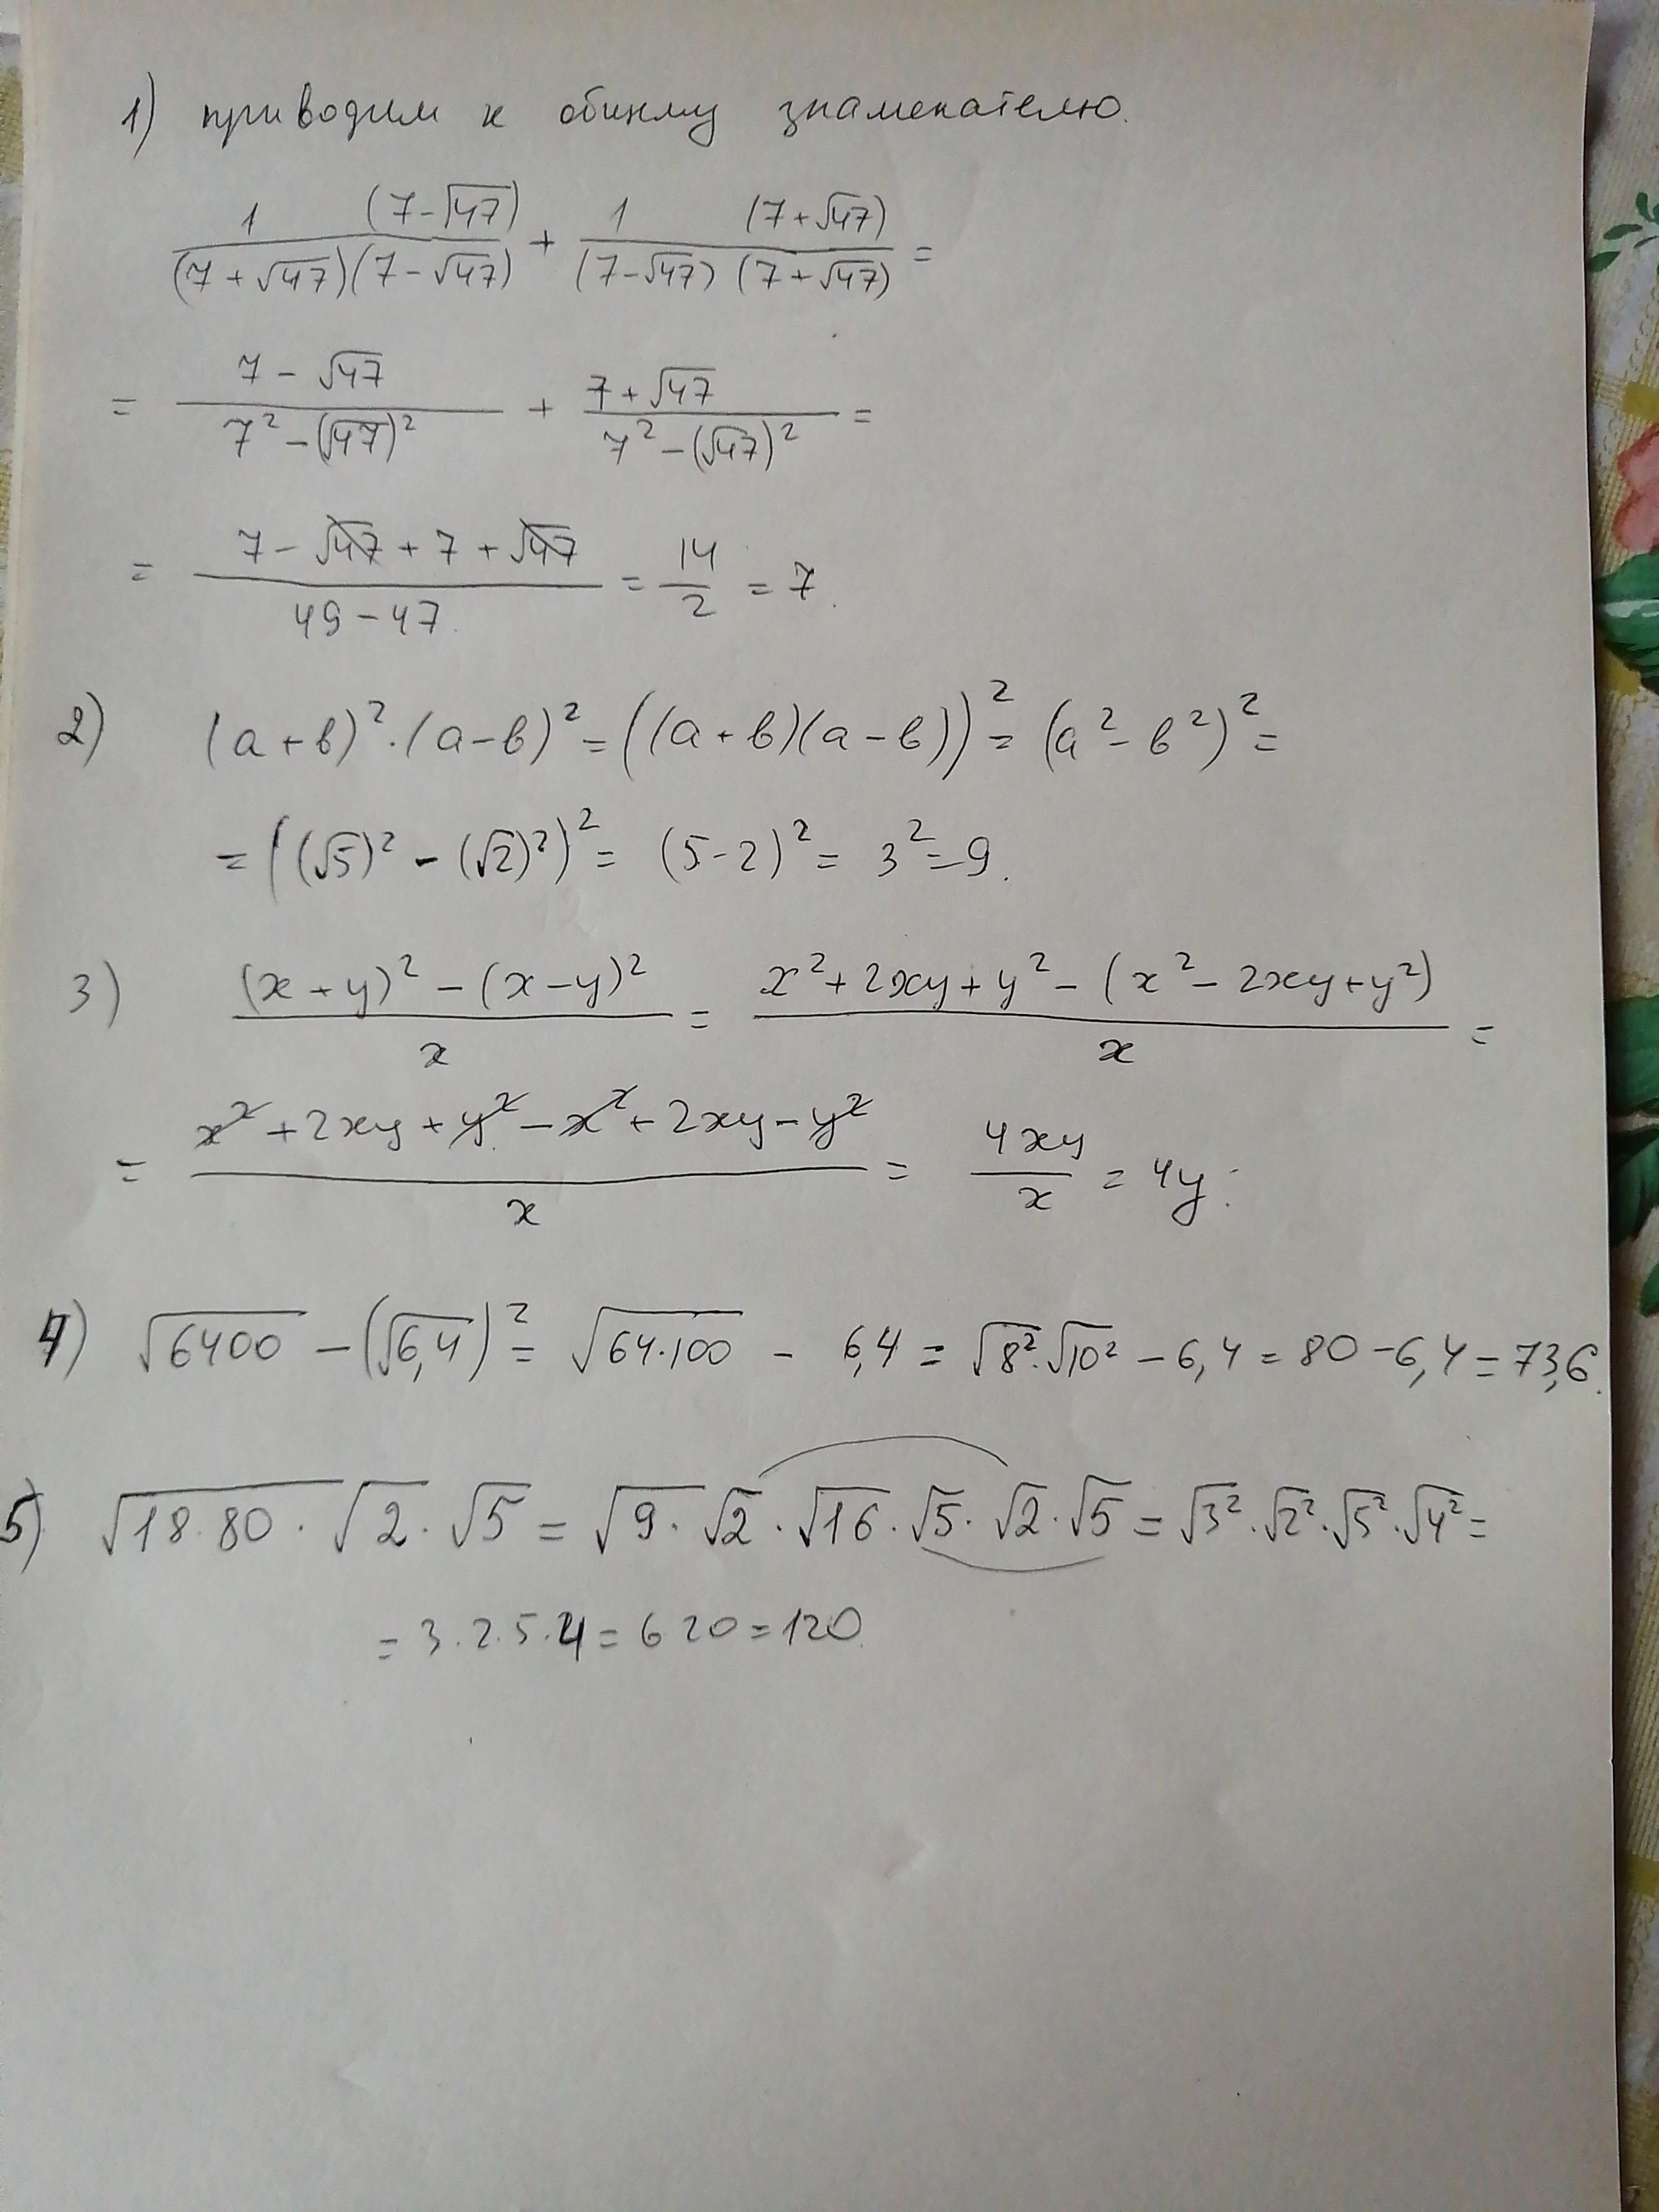 1) приводим к общему знаменателю.
1 (7-√47) / (7+√47)(7-√47) + 1 (7+√47) / (7-√47)(7+√47) =
= 7-√47 / 7²-(√47)² + 7+√47 / 7²-(√47)² =
= 7-√47+7+√47 / 49-47 = 14/2 = 7.
2) (a+b)²·(a-b)² = ((a+b)(a-b))² = (a²-b²)² =
= ((√5)²-(√2)²)² = (5-2)² = 3² = 9.
3) (x+y)²-(x-y)² / x = x²+2xy+y²-(x²-2xy+y²) / x =
= x²+2xy+y²-x²+2xy-y² / x = 4xy / x = 4y.
4) √6400 - (√6,4)² = √64·100 - 6,4 = √8²·√10² - 6,4 = 80-6,4 = 73,6.
5) √18·80 · √2 · √5 = √9·√2·√16·√5·√2·√5 = √3²·√2²·√5²·√4² =
= 3·2·5·4 = 6 20 = 120.